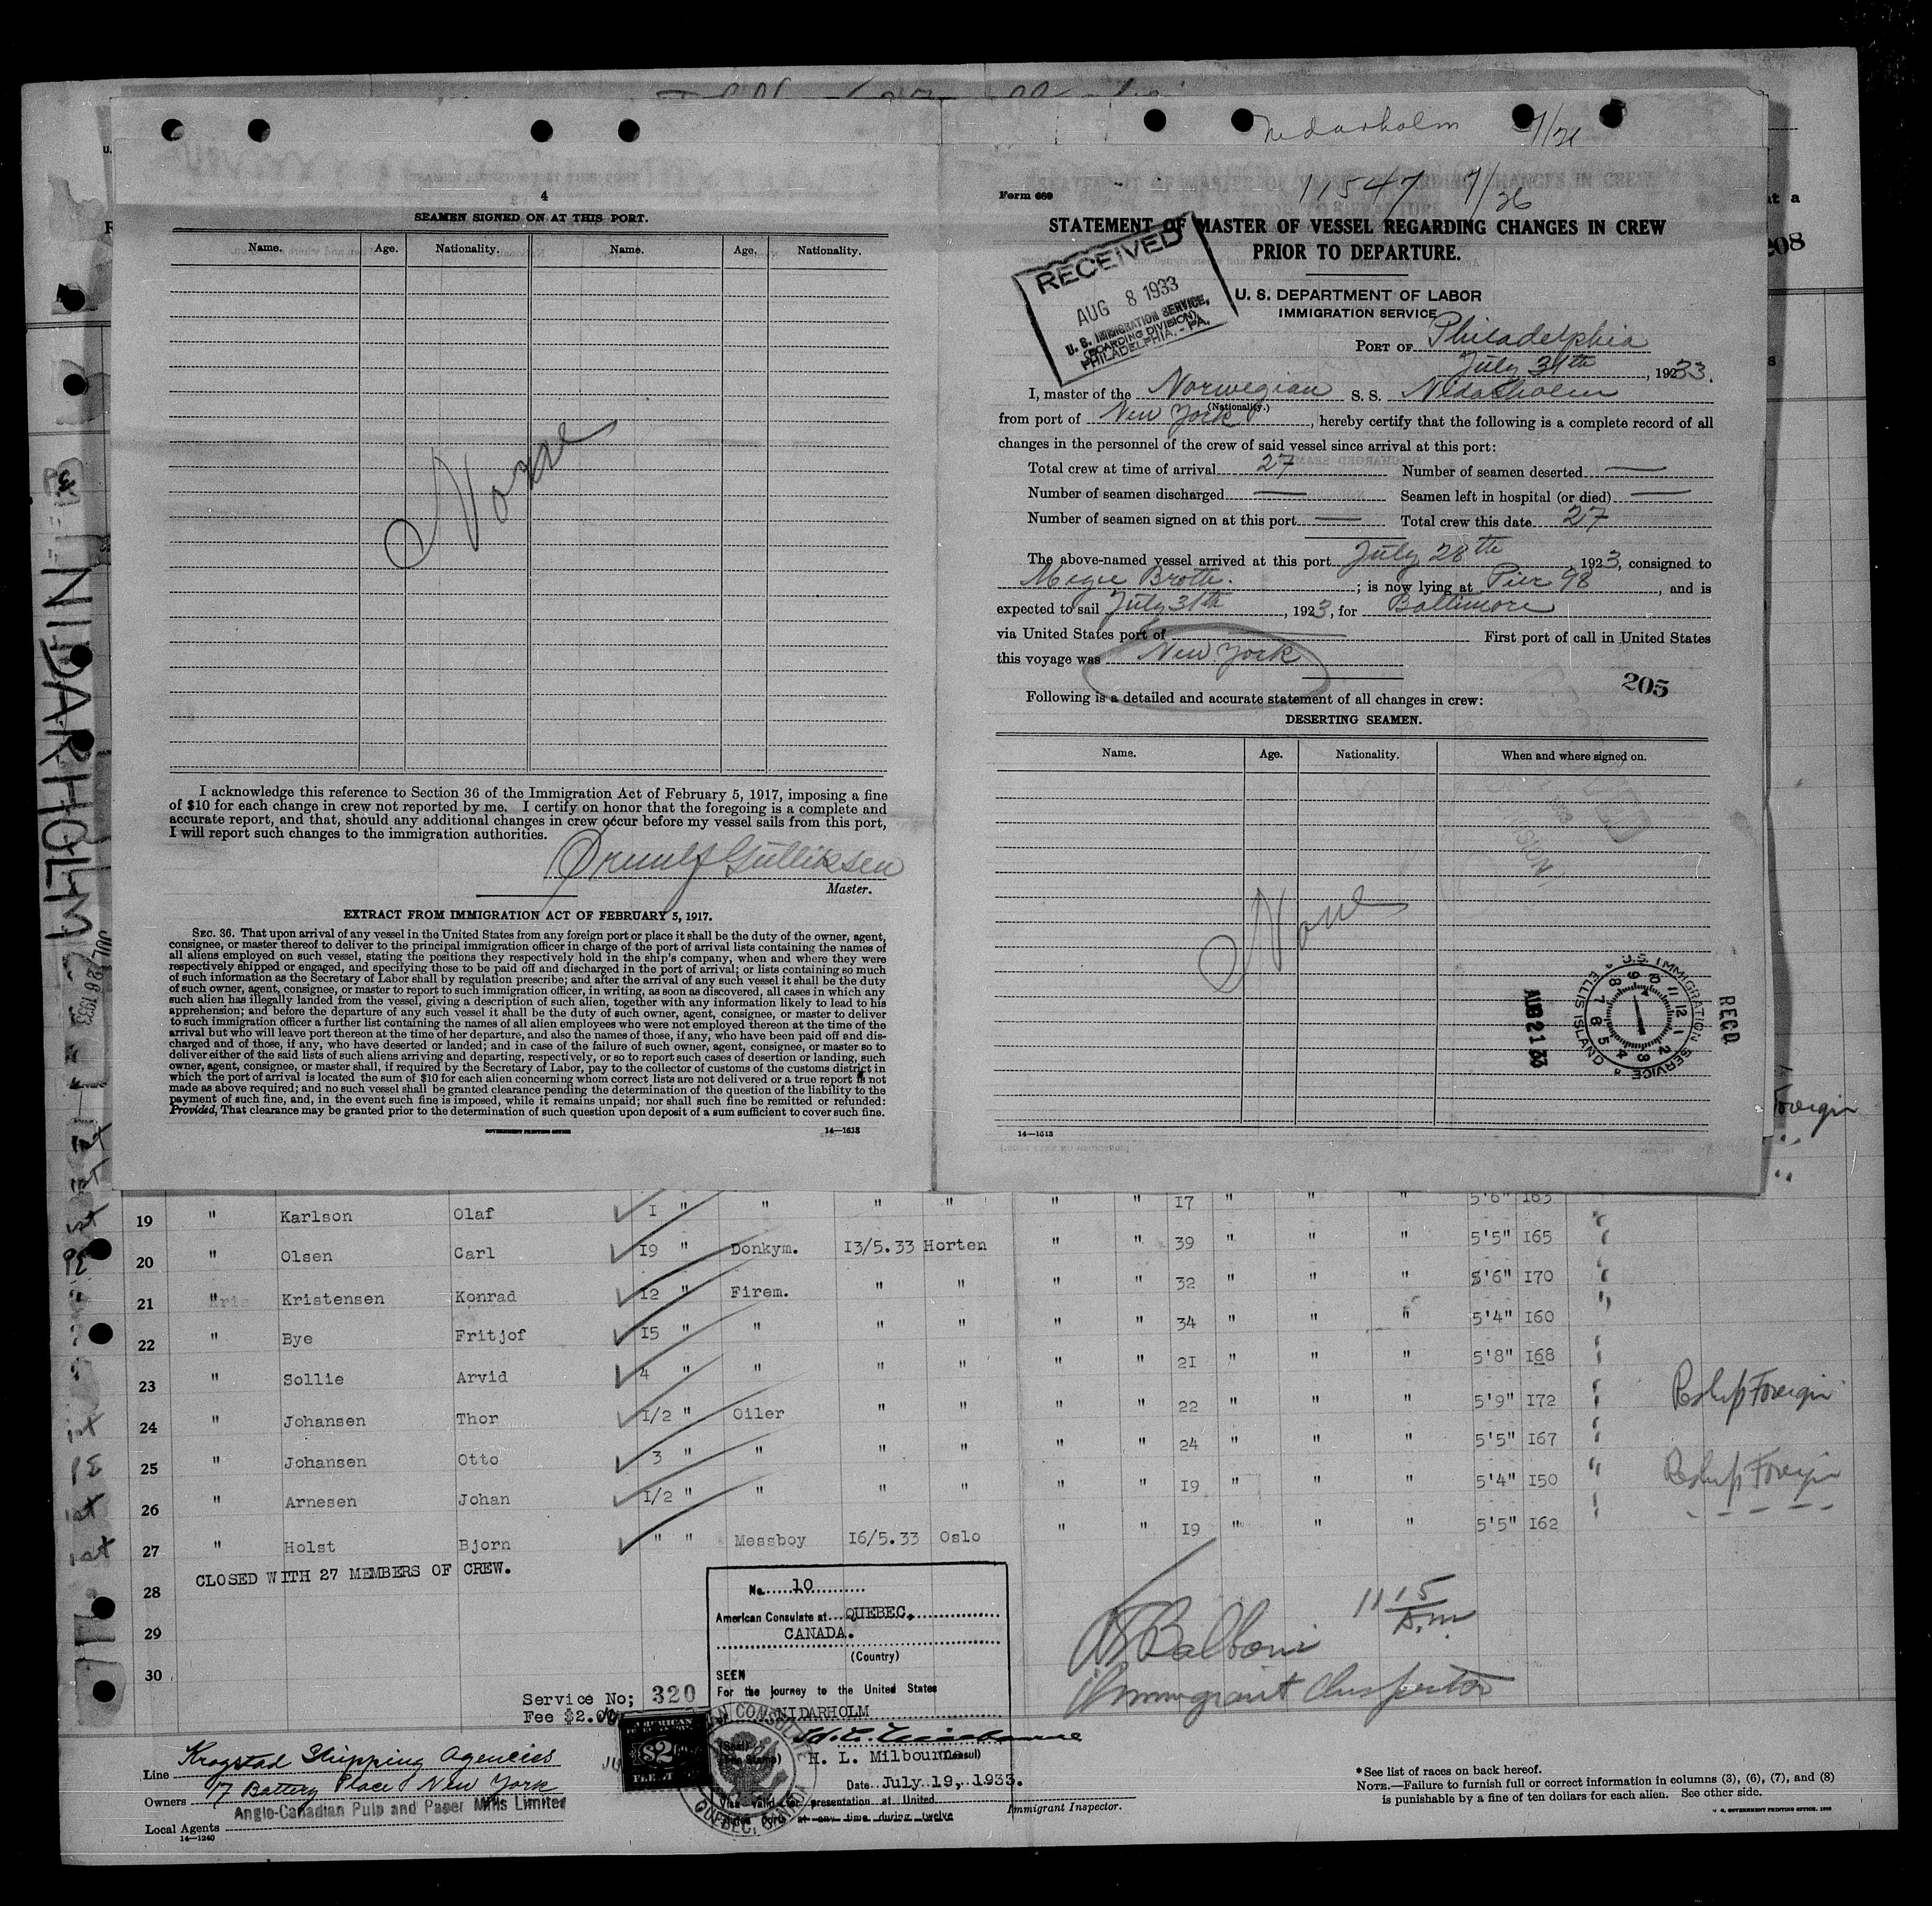 4
SEAMEN SIGNED ON AT THIS PORT.
Name. Age. Nationality. Name. Age. Nationality.
None
I acknowledge this reference to Section 36 of the Immigration Act of February 5, 1917, imposing a fine
of $10 for each change in crew not reported by me. I certify on honor that the foregoing is a complete and
accurate report, and that, should any additional changes in crew occur before my vessel sails from this port,
I will report such changes to the immigration authorities.
Gulliksen
Master.
EXTRACT FROM IMMIGRATION ACT OF FEBRUARY 5, 1917.
SEC. 36. That upon arrival of any vessel in the United States from any foreign port or place it shall be the duty of the owner, agent,
consignee, or master thereof to deliver to the principal immigration officer in charge of the port of arrival lists containing the names of
all aliens employed on such vessel, stating the positions they respectively hold in the ship's company, when and where they were
respectively shipped or engaged, and specifying those to be paid off and discharged in the port of arrival; or lists containing so much
of such information as the Secretary of Labor shall by regulation prescribe; and after the arrival of any such vessel it shall be the duty
of such owner, agent, consignee, or master to report to such immigration officer, in writing, as soon as discovered, all cases in which any
such alien has illegally landed from the vessel, giving a description of such alien, together with any information likely to lead to his
apprehension; and before the departure of any such vessel it shall be the duty of such owner, agent, consignee, or master to deliver
to such immigration officer a further list containing the names of all alien employees who were not employed thereon at the time of the
arrival but who will leave port thereon at the time of her departure, and also the names of those, if any, who have been paid off and dis-
charged and of those, if any, who have deserted or landed; and in case of the failure of such owner, agent, consignee, or master so to
deliver either of the said lists of such aliens arriving and departing, respectively, or so to report such cases of desertion or landing, such
owner, agent, consignee, or master shall, if required by the Secretary of Labor, pay to the collector of customs of the customs district in
which the port of arrival is located the sum of $10 for each alien concerning whom correct lists are not delivered or a true report is not
made as above required; and no such vessel shall be granted clearance pending the determination of the question of the liability to the
payment of such fine, and, in the event such fine is imposed, while it remains unpaid; nor shall such fine be remitted or refunded:
Provided, That clearance may be granted prior to the determination of such question upon deposit of a sum sufficient to cover such fine.
GOVERNMENT PRINTING OFFICE 14—1613
Nidarholm 7/26
11547 7/26
Form 689
STATEMENT OF MASTER OF VESSEL REGARDING CHANGES IN CREW
PRIOR TO DEPARTURE.
RECEIVED
AUG 8 1933
U. S. IMMIGRATION SERVICE,
(BOARDING DIVISION)
PHILADELPHIA, - PA.
U. S. DEPARTMENT OF LABOR
IMMIGRATION SERVICE
PORT OF Philadelphia
July 31th, 1933.
I, master of the Norwegian S. S. Nidarholm
(Nationality.)
from port of New York, hereby certify that the following is a complete record of all
changes in the personnel of the crew of said vessel since arrival at this port:
Total crew at time of arrival 27 Number of seamen deserted —
Number of seamen discharged — Seamen left in hospital (or died) —
Number of seamen signed on at this port — Total crew this date 27
The above-named vessel arrived at this port July 28th, 1923, consigned to
Megee Broth.; is now lying at Pier 98, and is
expected to sail July 31th, 1923, for Baltimore
via United States port of — First port of call in United States
this voyage was New York
205
Following is a detailed and accurate statement of all changes in crew:
DESERTING SEAMEN.
Name. Age. Nationality. When and where signed on.
None
RECD
U.S. IMMIGRATION SERVICE ELLIS ISLAND
AUG 21 33
14—1613
NIDARHOLM
JUL 26 1933
208
Foreign
5'6" 163
19 " Karlson Olaf 1 " " " " " " 17 " " "
20 " Olsen Carl 19 " Donkym. 13/5.33 Horten " " 39 " " " 5'5" 165
21 " Kristensen Konrad 12 " Firem. " " " " 32 " " " 5'6" 170
22 " Bye Fritjof 15 " " " " " " 34 " " " 5'4" 160
23 " Sollie Arvid 4 " " " " " " 21 " " " 5'8" 168
24 " Johansen Thor 1/2 " Oiler " " " " 22 " " " 5'9" 172 Reship Foreign
25 " Johansen Otto 3 " " " " " " 24 " " " 5'5" 167
26 " Arnesen Johan 1/2 " " " " " " 19 " " " 5'4" 150 Reship Foreign
27 " Holst Bjorn " " Messboy 16/5.33 Oslo " " 19 " " " 5'5" 162
CLOSED WITH 27 MEMBERS OF CREW.
28
29
30
No. 10
American Consulate at QUEBEC,
CANADA.
(Country)
SEEN
For the journey to the United States
NIDARHOLM
H. L. Milbourne
(Consul)
Date July 19, 1933.
presentation at United
at any time during twelve
QUEBEC, CANADA
Service No; 320
Fee $2.00
$2
Balboni
Immigrant Inspector
11 15 A.m
Immigrant Inspector.
Line Krogstad Shipping Agencies
Owners 17 Battery Place New York
Anglo-Canadian Pulp and Paper Mills Limited
Local Agents
14—1240
*See list of races on back hereof.
NOTE.—Failure to furnish full or correct information in columns (3), (6), (7), and (8)
is punishable by a fine of ten dollars for each alien. See other side.